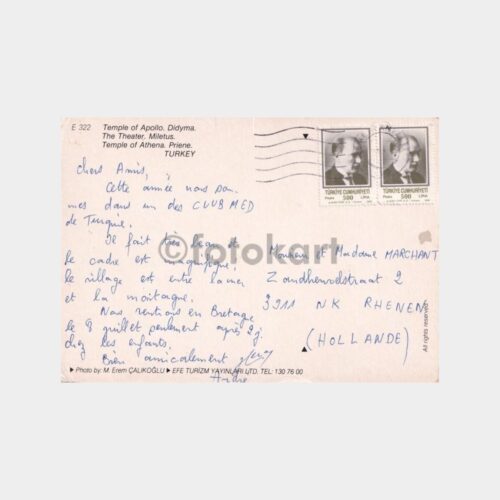 E 322
Temple of Apollo. Didyma.
The Theater. Miletus.
Temple of Athena. Priene.
TURKEY
TÜRKİYE CUMHURİYETİ
Posta 500 LİRA
TÜRKİYE CUMHURİYETİ
Posta 500 LİRA
Chers Amis,
Cette année nous som
mes dans un des CLUB MED
de Turquie.
Il fait très beau et
le cadre est magnifique,
le village est entre la mer
et la montagne.
Nous rentrons en Bretagne
le 8 juillet seulement après 2j.
chez les enfants.
Bien amicalement
André
Monsieur et Madame MARCHANT
Zandheuvelstraat 2
3911 NK RHENEN
(HOLLANDE)
All rights reserved.
©fotokart
Photo by: M. Erem ÇALIKOĞLU EFE TURİZM YAYINLARI LTD. TEL: 130 76 00